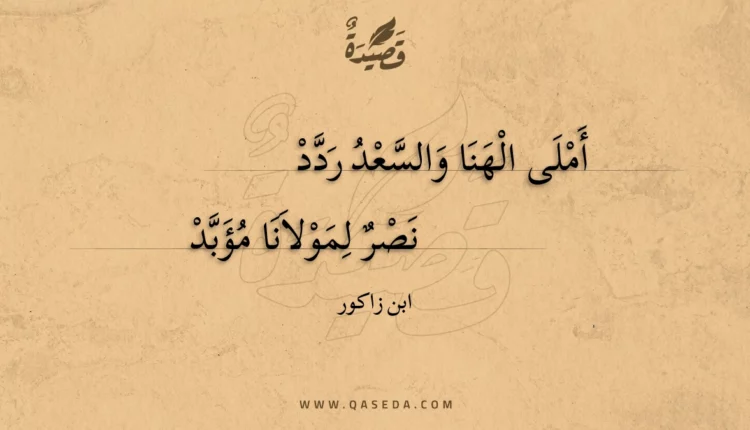 قَصِيدَةٌ
أَمْلَى الْهَنَا وَالسَّعْدُ رَدَّدْ
نَصْرٌ لِمَوْلاَنَا مُؤَبَّدْ
ابن زاكور
WWW.QASEDA.COM